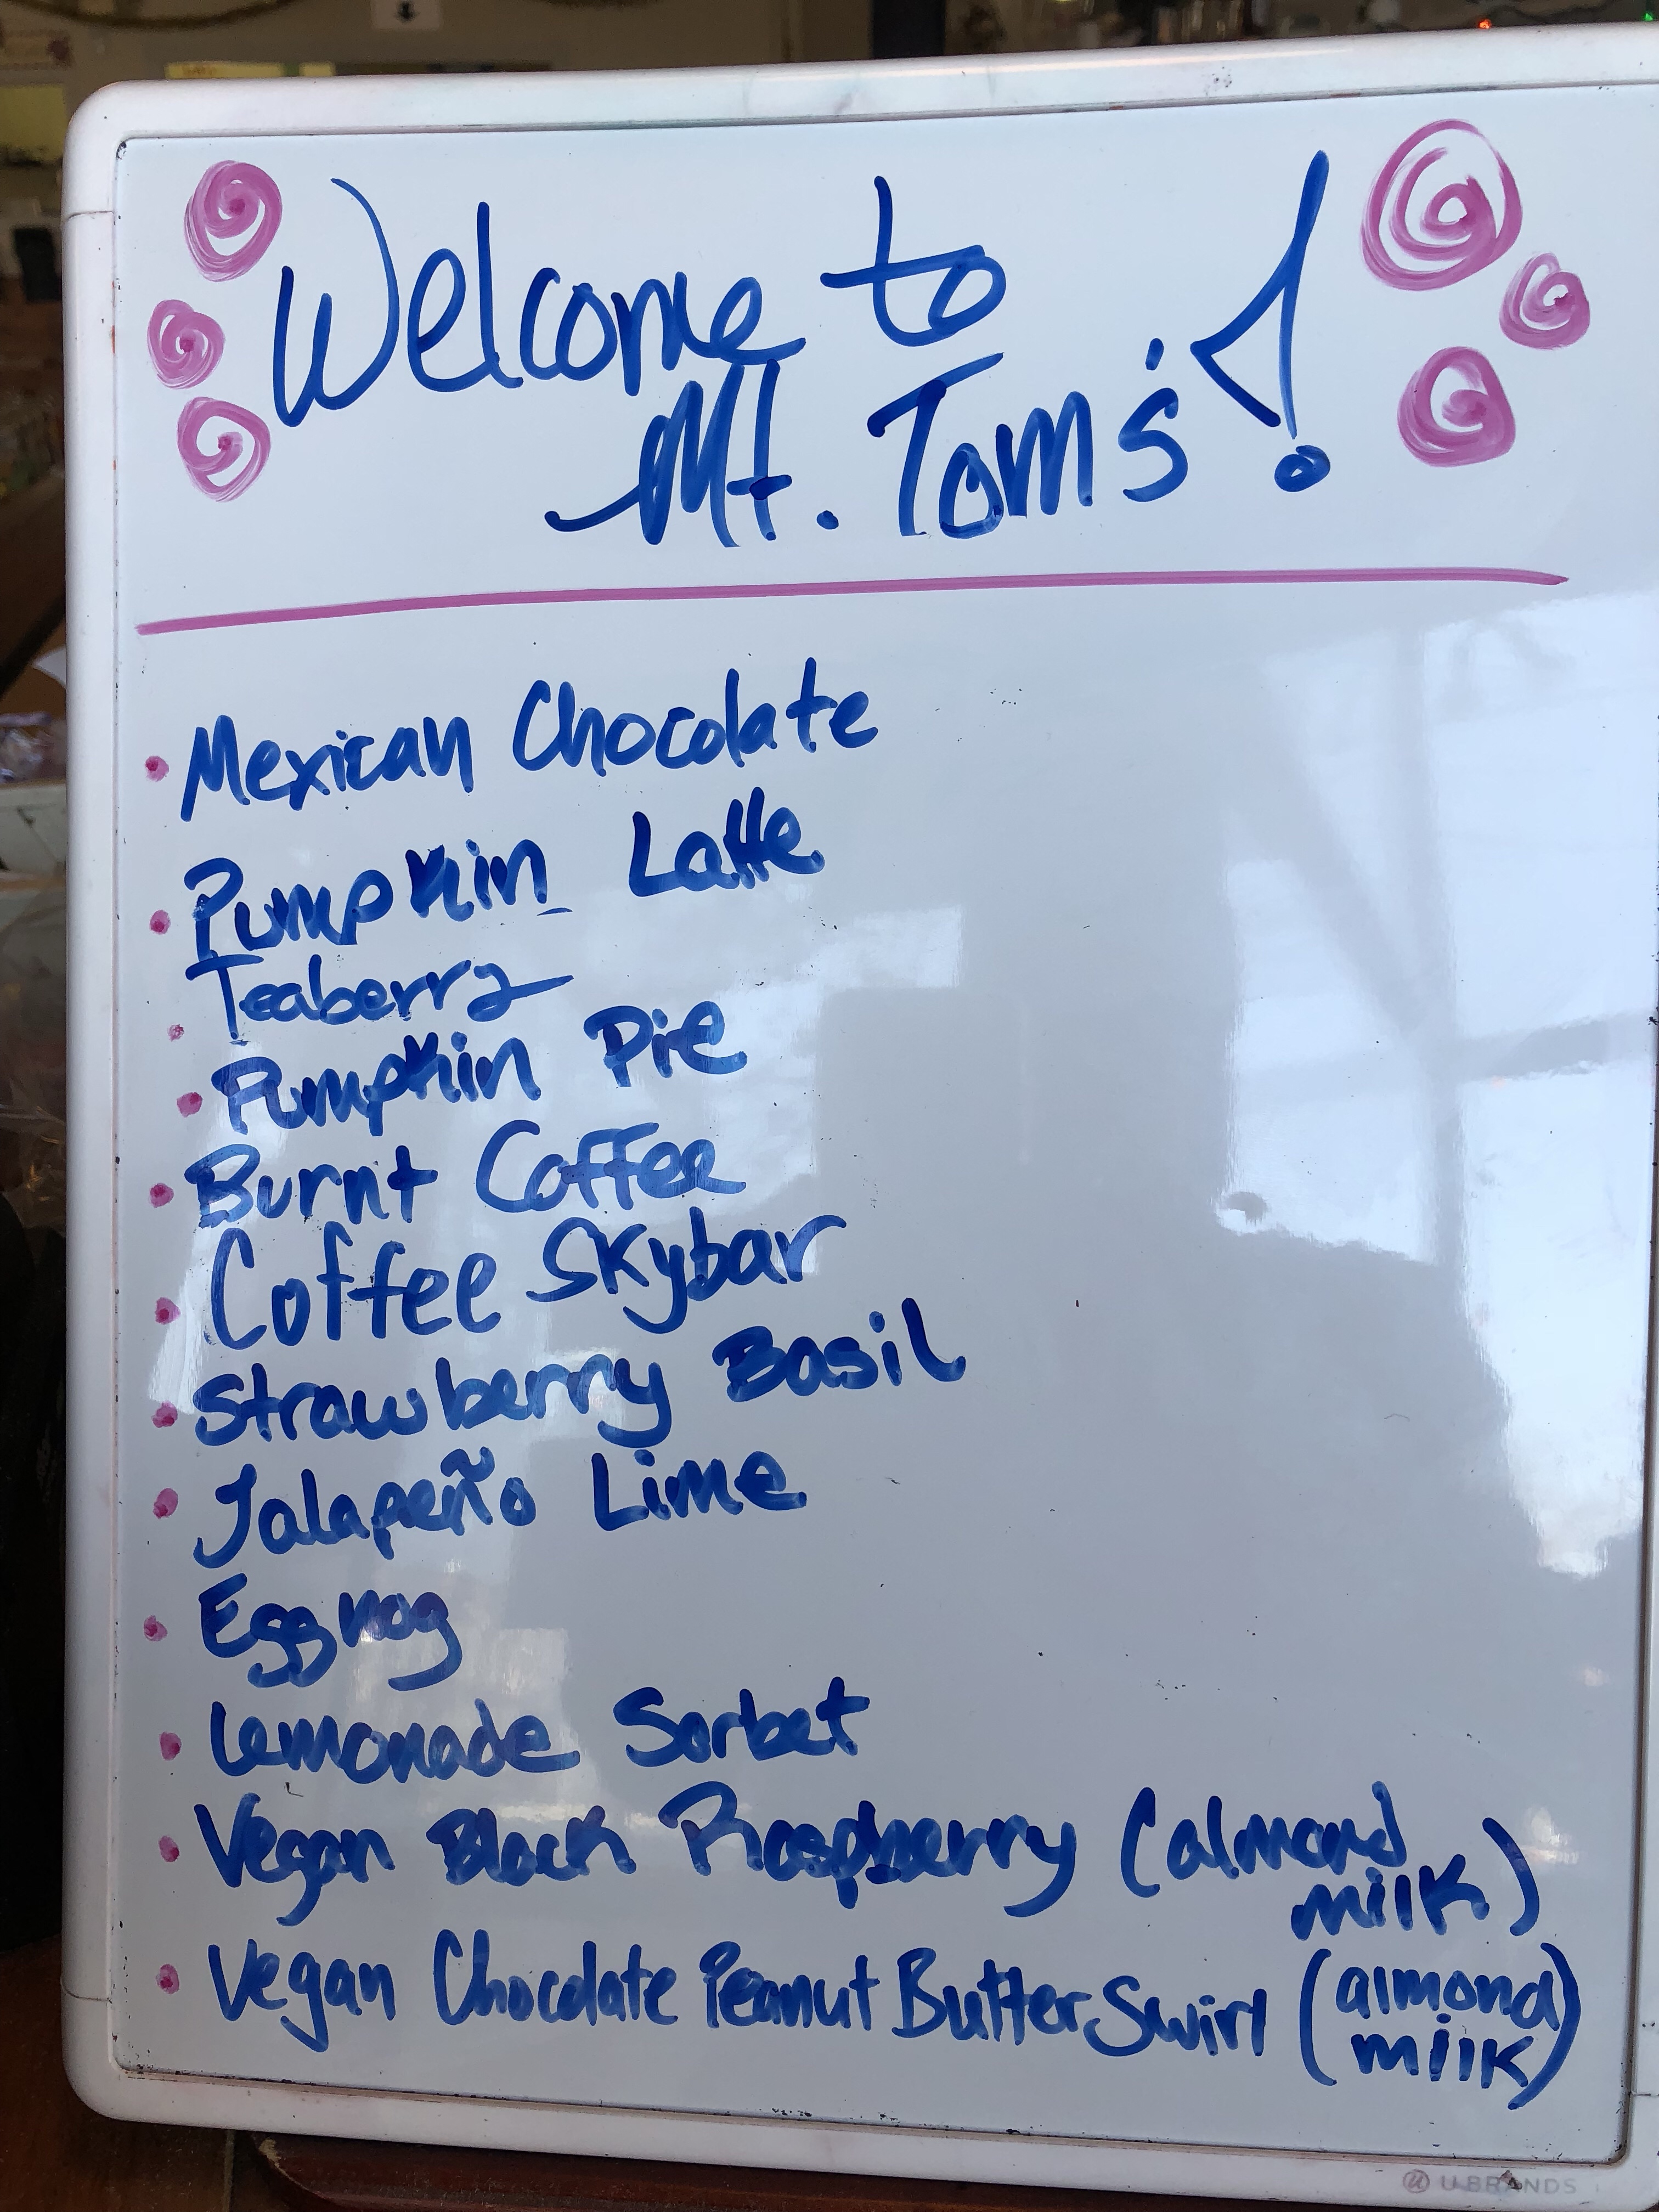 Welcome to
Mt. Tom's!
Mexican Chocolate
Pumpkin Latte
Teaberry
Pumpkin Pie
Burnt Coffee
Coffee Skybar
Strawberry Basil
Jalapeño Lime
Eggnog
Lemonade Sorbet
Vegan Black Raspberry (almond
milk)
Vegan Chocolate Peanut Butter Swirl (almond
milk)
U BRANDS